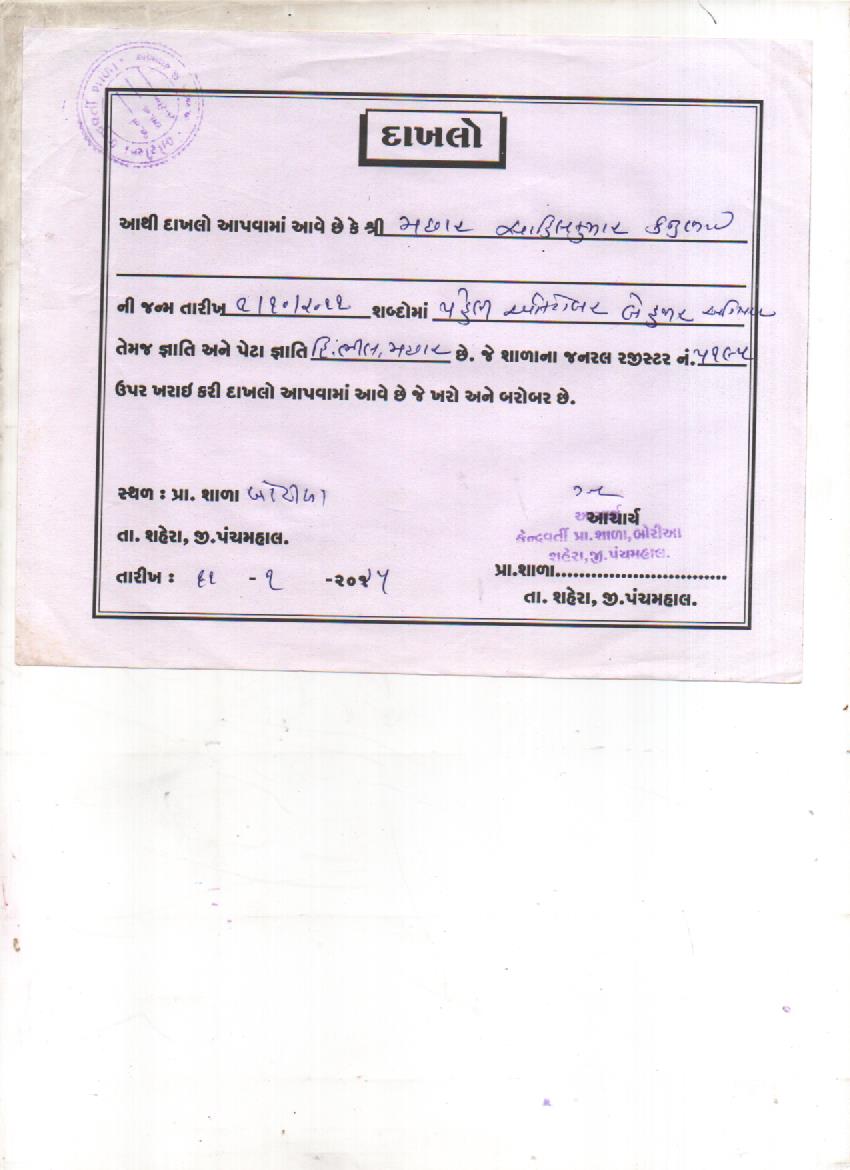 દાખલો
આથી દાખલો આપવામાં આવે છે કે શ્રી મછાર
ની જન્મ તારીખ ૧/૧૦/૨૦૧૧ શબ્દોમાં પહેલી ઓક્ટોબર બે હજાર અગિયાર
તેમજ જ્ઞાતિ અને પેટા જ્ઞાતિ હિ.ભીલ, મછાર છે. જે શાળાના જનરલ રજીસ્ટર નં.
ઉપર ખરાઇ કરી દાખલો આપવામાં આવે છે જે ખરો અને બરોબર છે.
સ્થળ : પ્રા. શાળા બોરીઆ
તા. શહેરા, જી.પંચમહાલ.
તારીખ : - ૧ -૨૦૨૫
આચાર્ય
આચાર્ય
કેન્દ્રવર્તી પ્રા.શાળા,બોરીઆ
શહેરા,જી.પંચમહાલ.
પ્રા.શાળા..............................
તા. શહેરા, જી.પંચમહાલ.